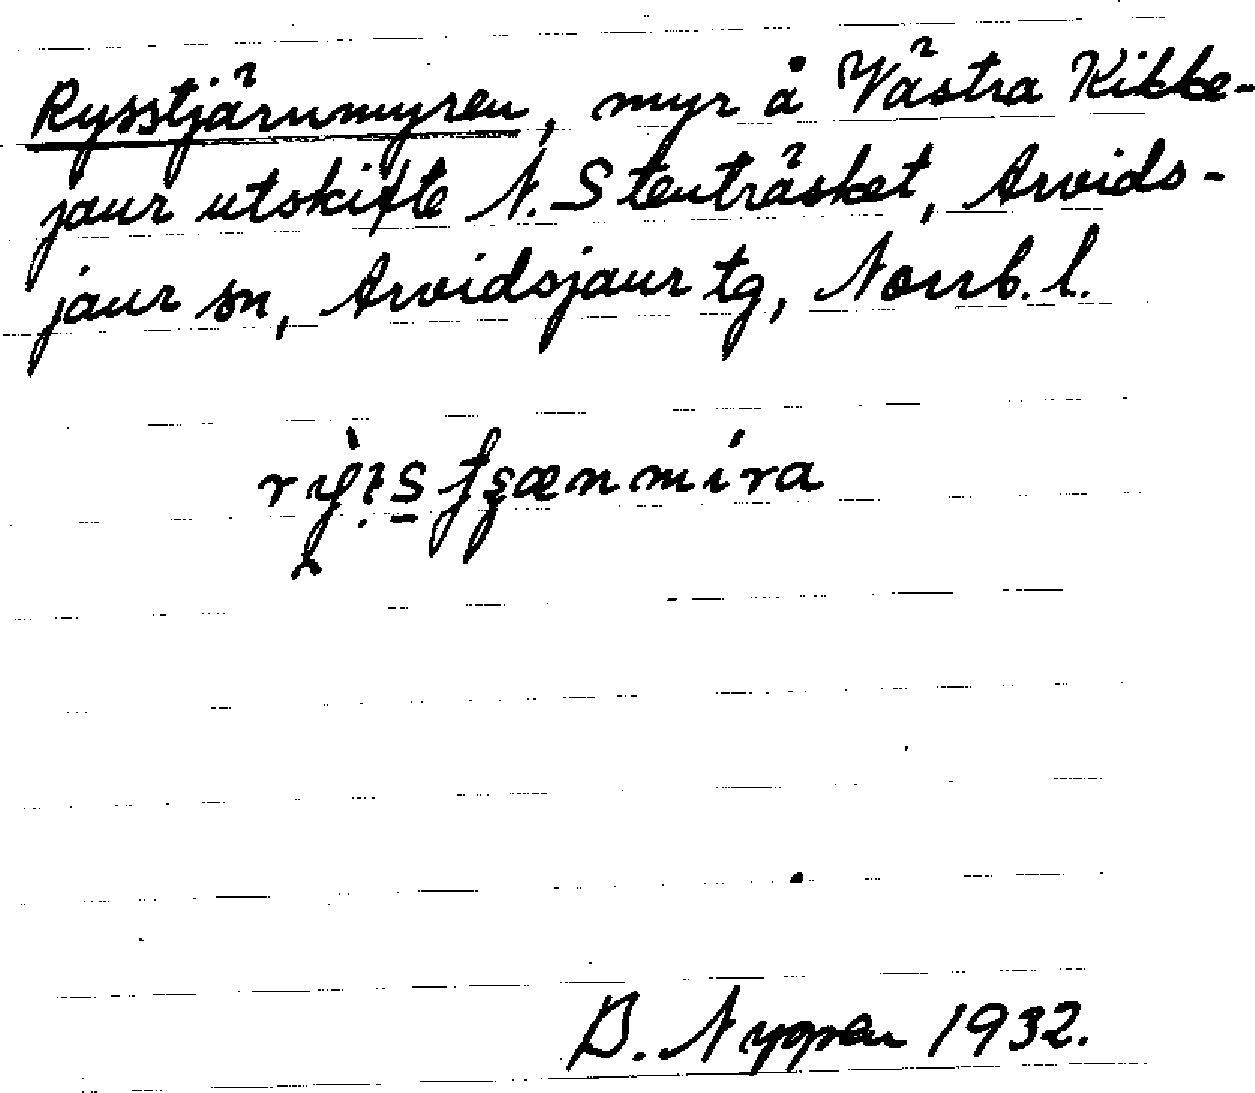 Rysstjärnmyren, myr å Västra Kikke-
jaur utskifte N. Stenträsket, Arvids-
jaur sn, Arvidsjaur tg, Norrb. l.
B. Nygren 1932.